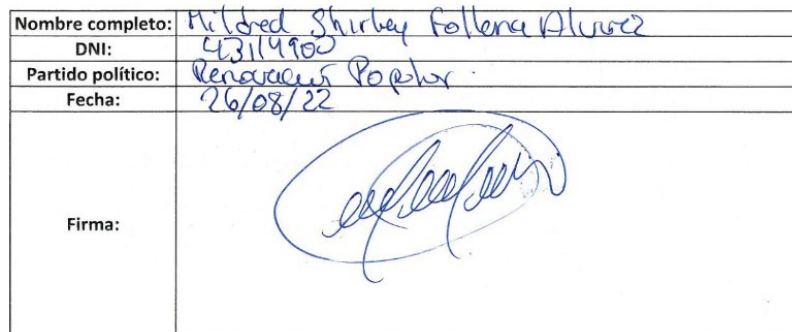 Nombre completo: Mildred Shirley Follena Alvarez
DNI: 43114900
Partido político: Renovación Popular.
Fecha: 26/08/22
Firma: